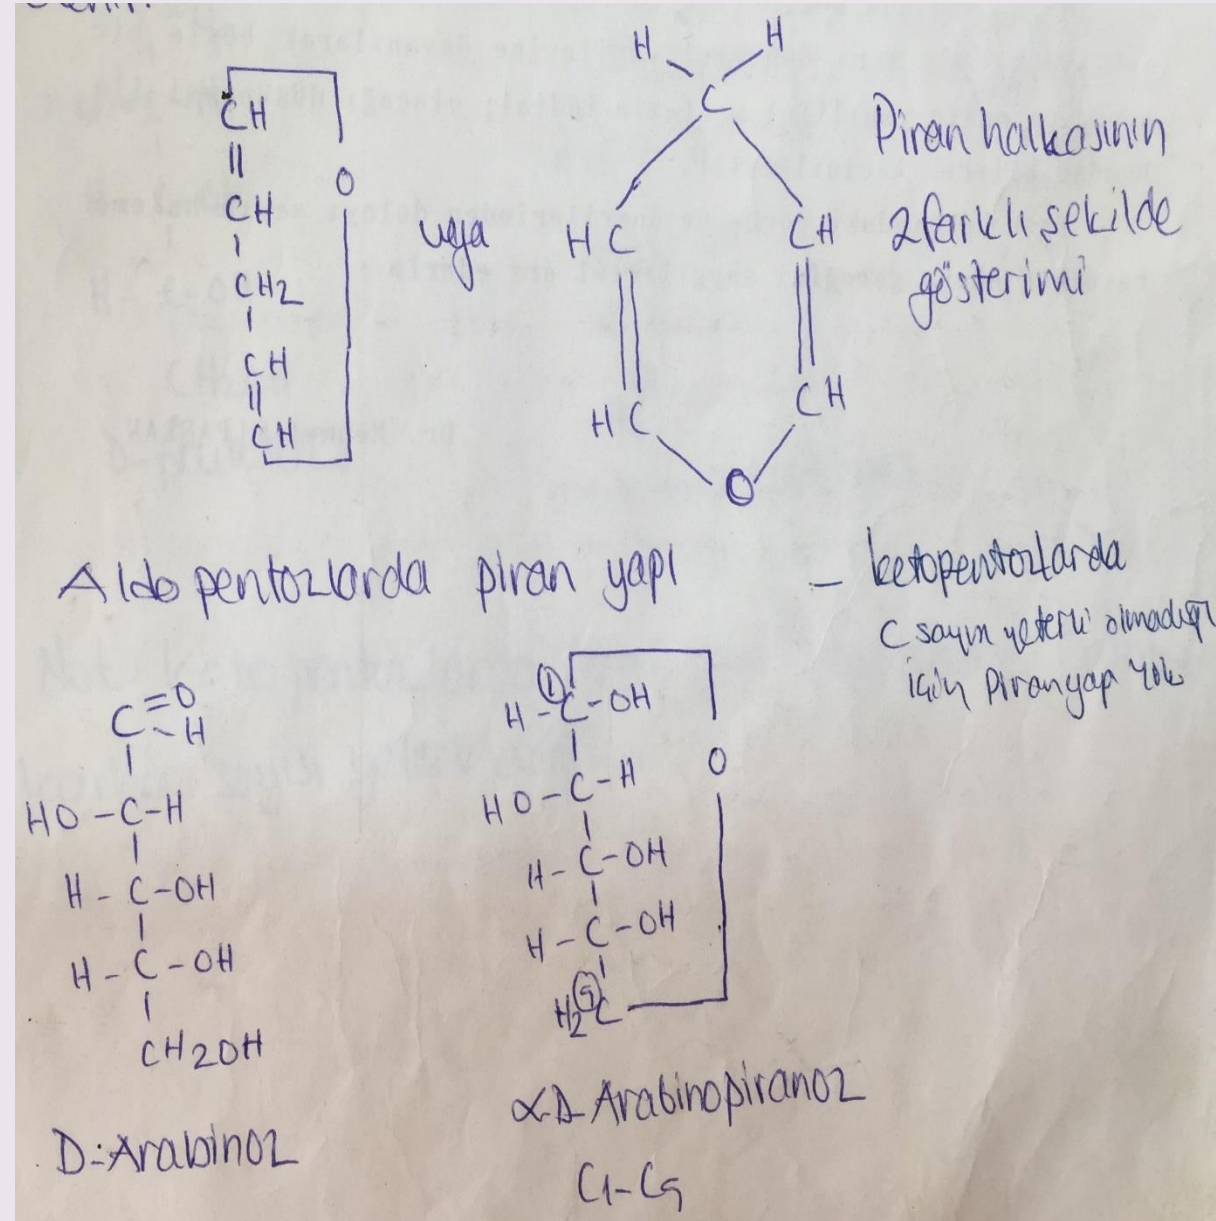 CH
||
CH
CH2
CH
||
CH
O
veya
H H
C
HC CH
HC CH
O
Piran halkasının
2 farklı şekilde
gösterimi
Aldopentozlarda piran yapı
- ketopentozlarda
C sayısı yeterli olmadığı
için Piran yapı yok
C=O
-H
HO-C-H
H-C-OH
H-C-OH
CH2OH
D-Arabinoz
1
H-C-OH
HO-C-H
H-C-OH
H-C-OH
5
H2C
O
α-D-Arabinopiranoz
C1-C5